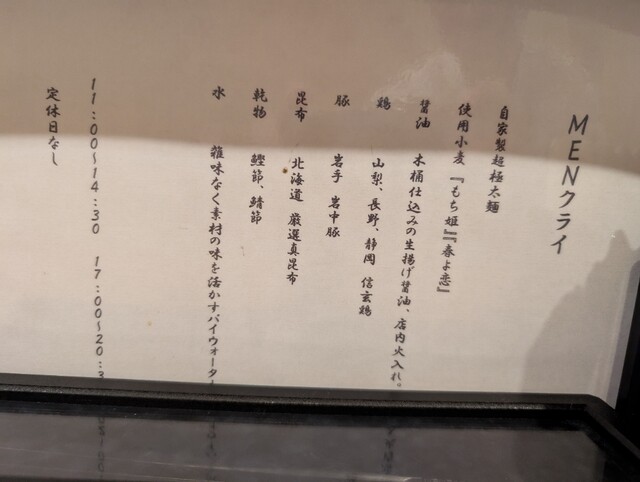 MENクライ
自家製超極太麺
使用小麦 『もち姫』『春よ恋』
醤油 木桶仕込みの生揚げ醤油、店内火入れ。
鶏 山梨、長野、静岡 信玄鶏
豚 岩手 岩中豚
昆布 北海道 厳選真昆布
乾物 鰹節、鯖節
水 雑味なく素材の味を活かすパイウォーター
11:00~14:30 17:00~20:3
定休日なし